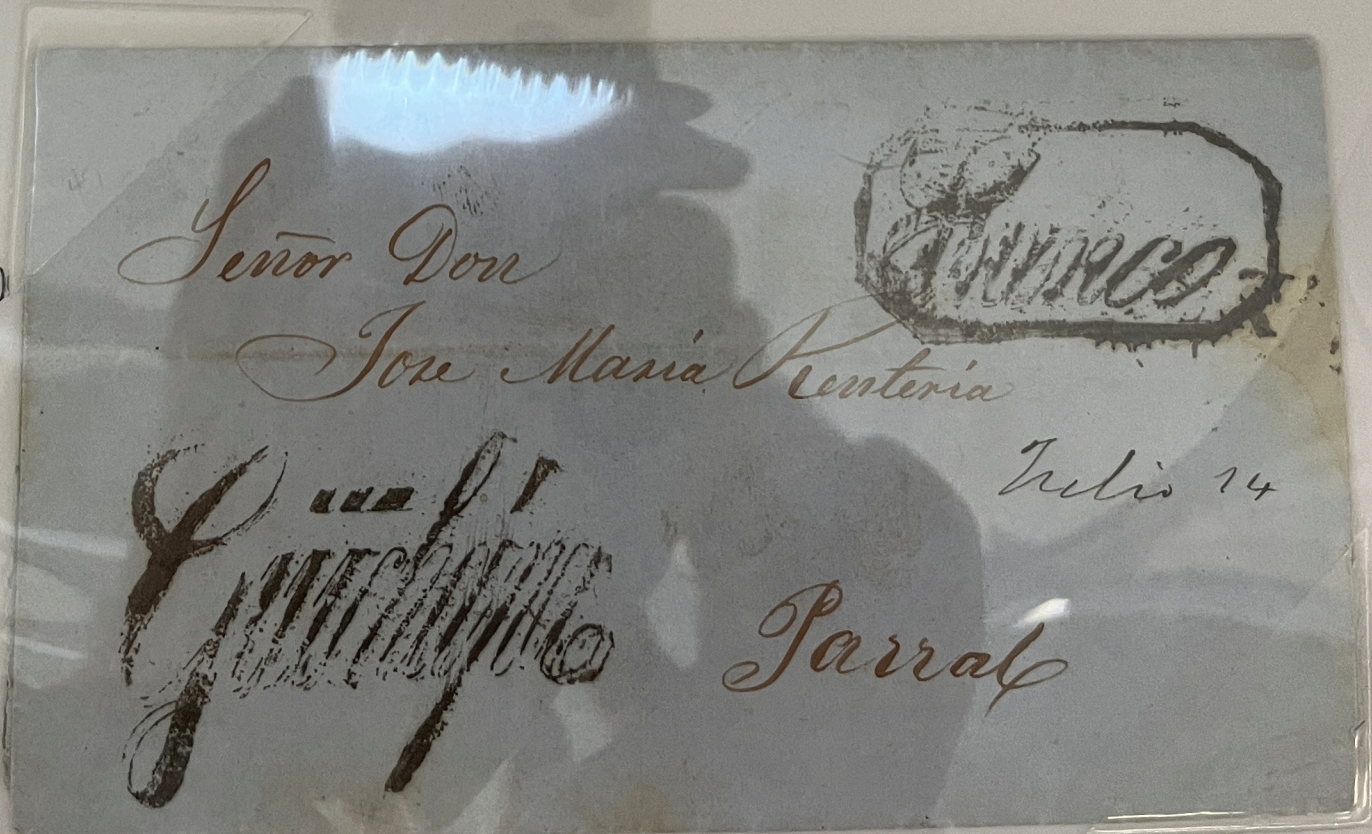 Señor Don
Franco
Jose Maria Renteria
Julio 14
Parral